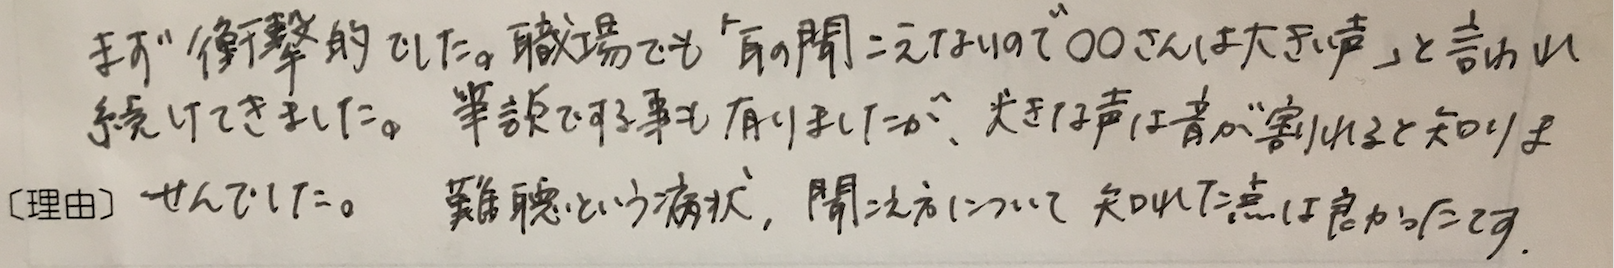 まず衝撃的でした。職場でも「耳の聞こえないので〇〇さんは大きい声」と言われ
続けてきました。 筆談でする事も有りましたが、大きな声は音が割れると知りま
〔理由〕 せんでした。 難聴という病状, 聞こえ方について知れた点は良かったです.